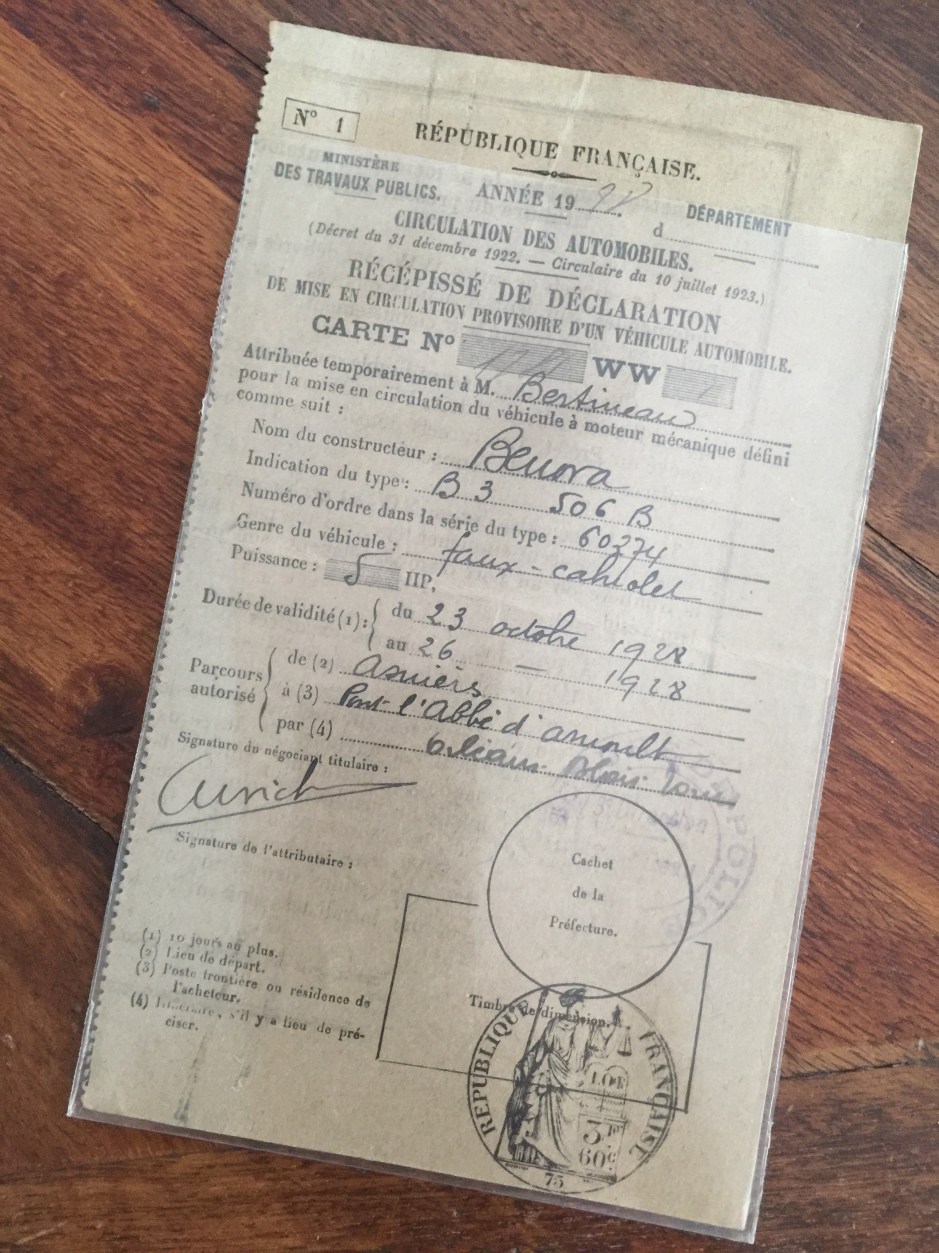 N° 1
RÉPUBLIQUE FRANÇAISE.
MINISTÈRE
DES TRAVAUX PUBLICS.
ANNÉE 19
DÉPARTEMENT
d
CIRCULATION DES AUTOMOBILES.
(Décret du 31 décembre 1922. — Circulaire du 10 juillet 1923.)
RÉCÉPISSÉ DE DÉCLARATION
DE MISE EN CIRCULATION PROVISOIRE D'UN VÉHICULE AUTOMOBILE.
CARTE N° WW
Attribuée temporairement à M. Bertineau
pour la mise en circulation du véhicule à moteur mécanique défini
comme suit :
Nom du constructeur : Benova
Indication du type : B 3 506 B
Numéro d'ordre dans la série du type : 60274
Genre du véhicule : faux-cabriolet
Puissance : 5 HP.
Durée de validité (1) : du 23 octobre 1928
au 26 — 1928
Parcours autorisé de (2) Asnières
à (3) Pont l'Abbé d'Arnoult
par (4) Orléans Blois Tours
Signature du négociant titulaire :
Signature de l'attributaire :
Cachet
de la
Préfecture.
(1) 10 jours au plus.
(2) Lieu de départ.
(3) Poste frontière ou résidence de
l'acheteur.
(4) Itinéraire, s'il y a lieu de pré-
ciser.
Timbre de dimension.
RÉPUBLIQUE FRANÇAISE
3F
60c
75